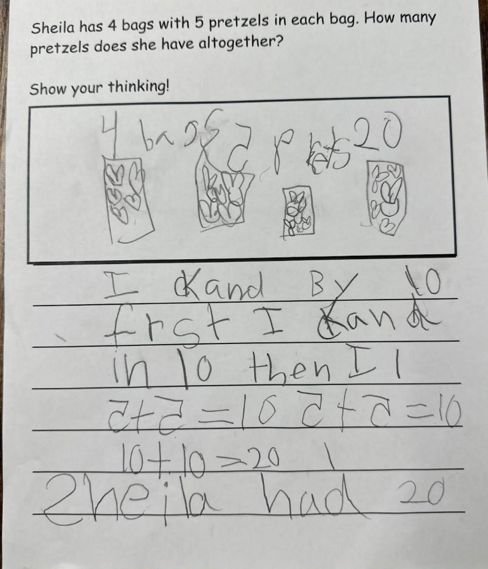 Sheila has 4 bags with 5 pretzels in each bag. How many
pretzels does she have altogether?
Show your thinking!
4 bags 5 prets 20
I kand By 10
frst I kand
in 10 then I
5+5=10 5+5=10
10+10=20
Sheila had 20